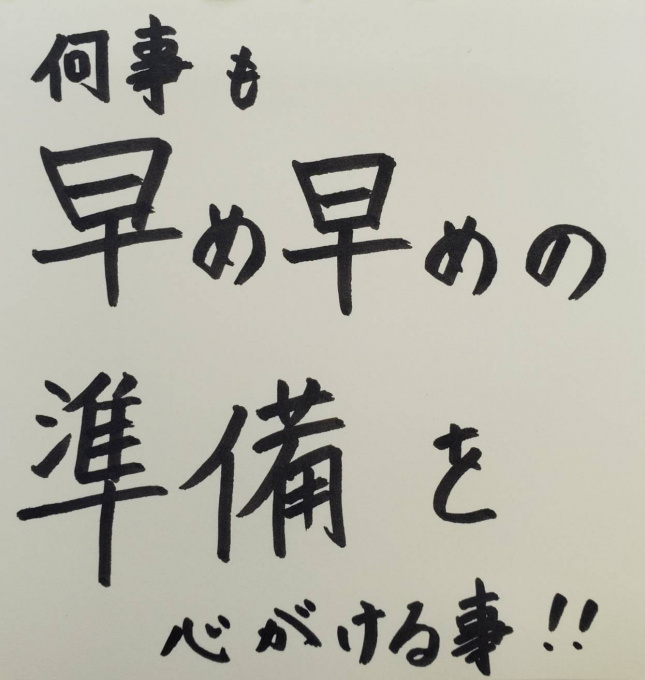 何事も
早め早めの
準備を
心がける事!!